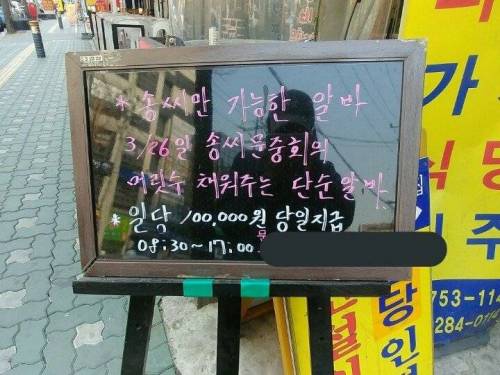 * 송씨만 가능한 알바
3/26일 송씨문중회의
머릿수 채워주는 단순알바
* 일당 100,000원 당일지급
08:30~17:00
753-114
284-0114
당인